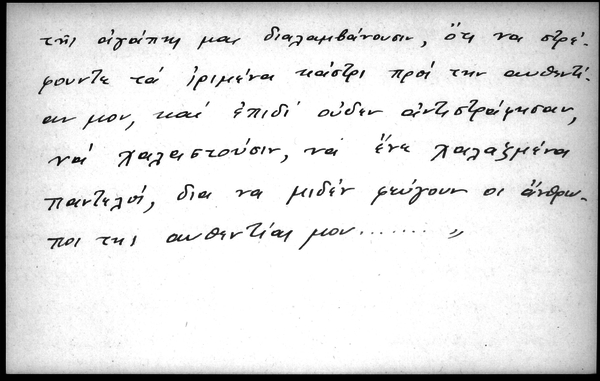 τῆς ἀγάπης μας διαλαμβάνουσιν, ὅτι να στρέ-
φουντε τά ὁριμένα κάστρι πρός την αυθεντί-
αν μου, καί ἐπιδί οὐδεν ἀντιστράφησαν,
νά χαλαστούσιν, νά ἔνε χαλαζμένα
παντελός, δια να μιδέν φεύγουν οι ἄνθρω-
ποι της αυθεντίας μου....... "